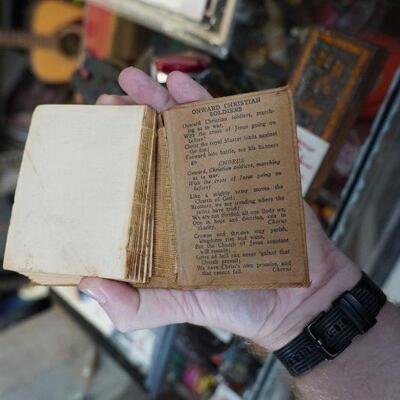 ONWARD CHRISTIAN
SOLDIERS
Onward Christian soldiers, march-
ing as to war,
With the cross of Jesus going on
before!
Christ the royal Master leads against
the foe;
Forward into battle, see his banners
go.
CHORUS
Onward, Christian soldiers, marching
as to war,
With the cross of Jesus going on
before!
Like a mighty army moves the
Church of God;
Brothers, we are treading where the
saints have trod;
We are not divided, all one Body we,
One in hope and doctrine, one in
charity. Chorus
Crowns and thrones may perish,
kingdoms rise and wane,
But the Church of Jesus constant
will remain;
Gates of hell can never 'gainst that
Church prevail;
We have Christ's own promise, and
that cannot fail. Chorus